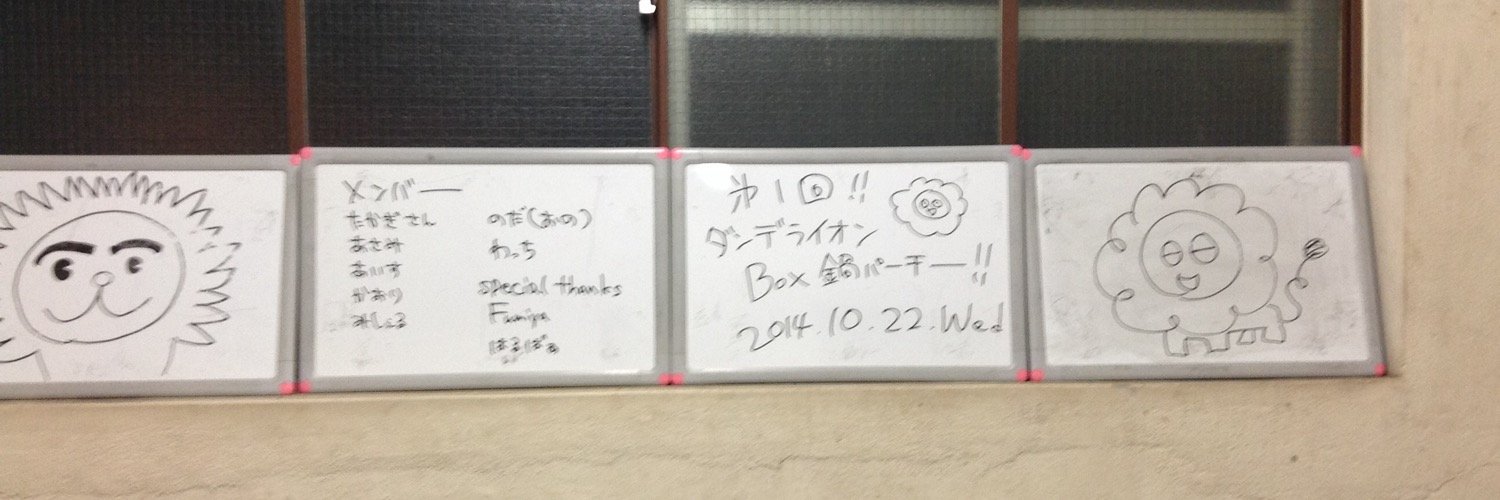 メンバー
たかぎさん
あさみ
あいす
かおり
みしぇる
のだ(あの)
わっち
special thanks
Fumiya
ぱるぱぁ
第1回!!
ダンデライオン
Box 鍋パーチー!!
2014.10.22.Wed